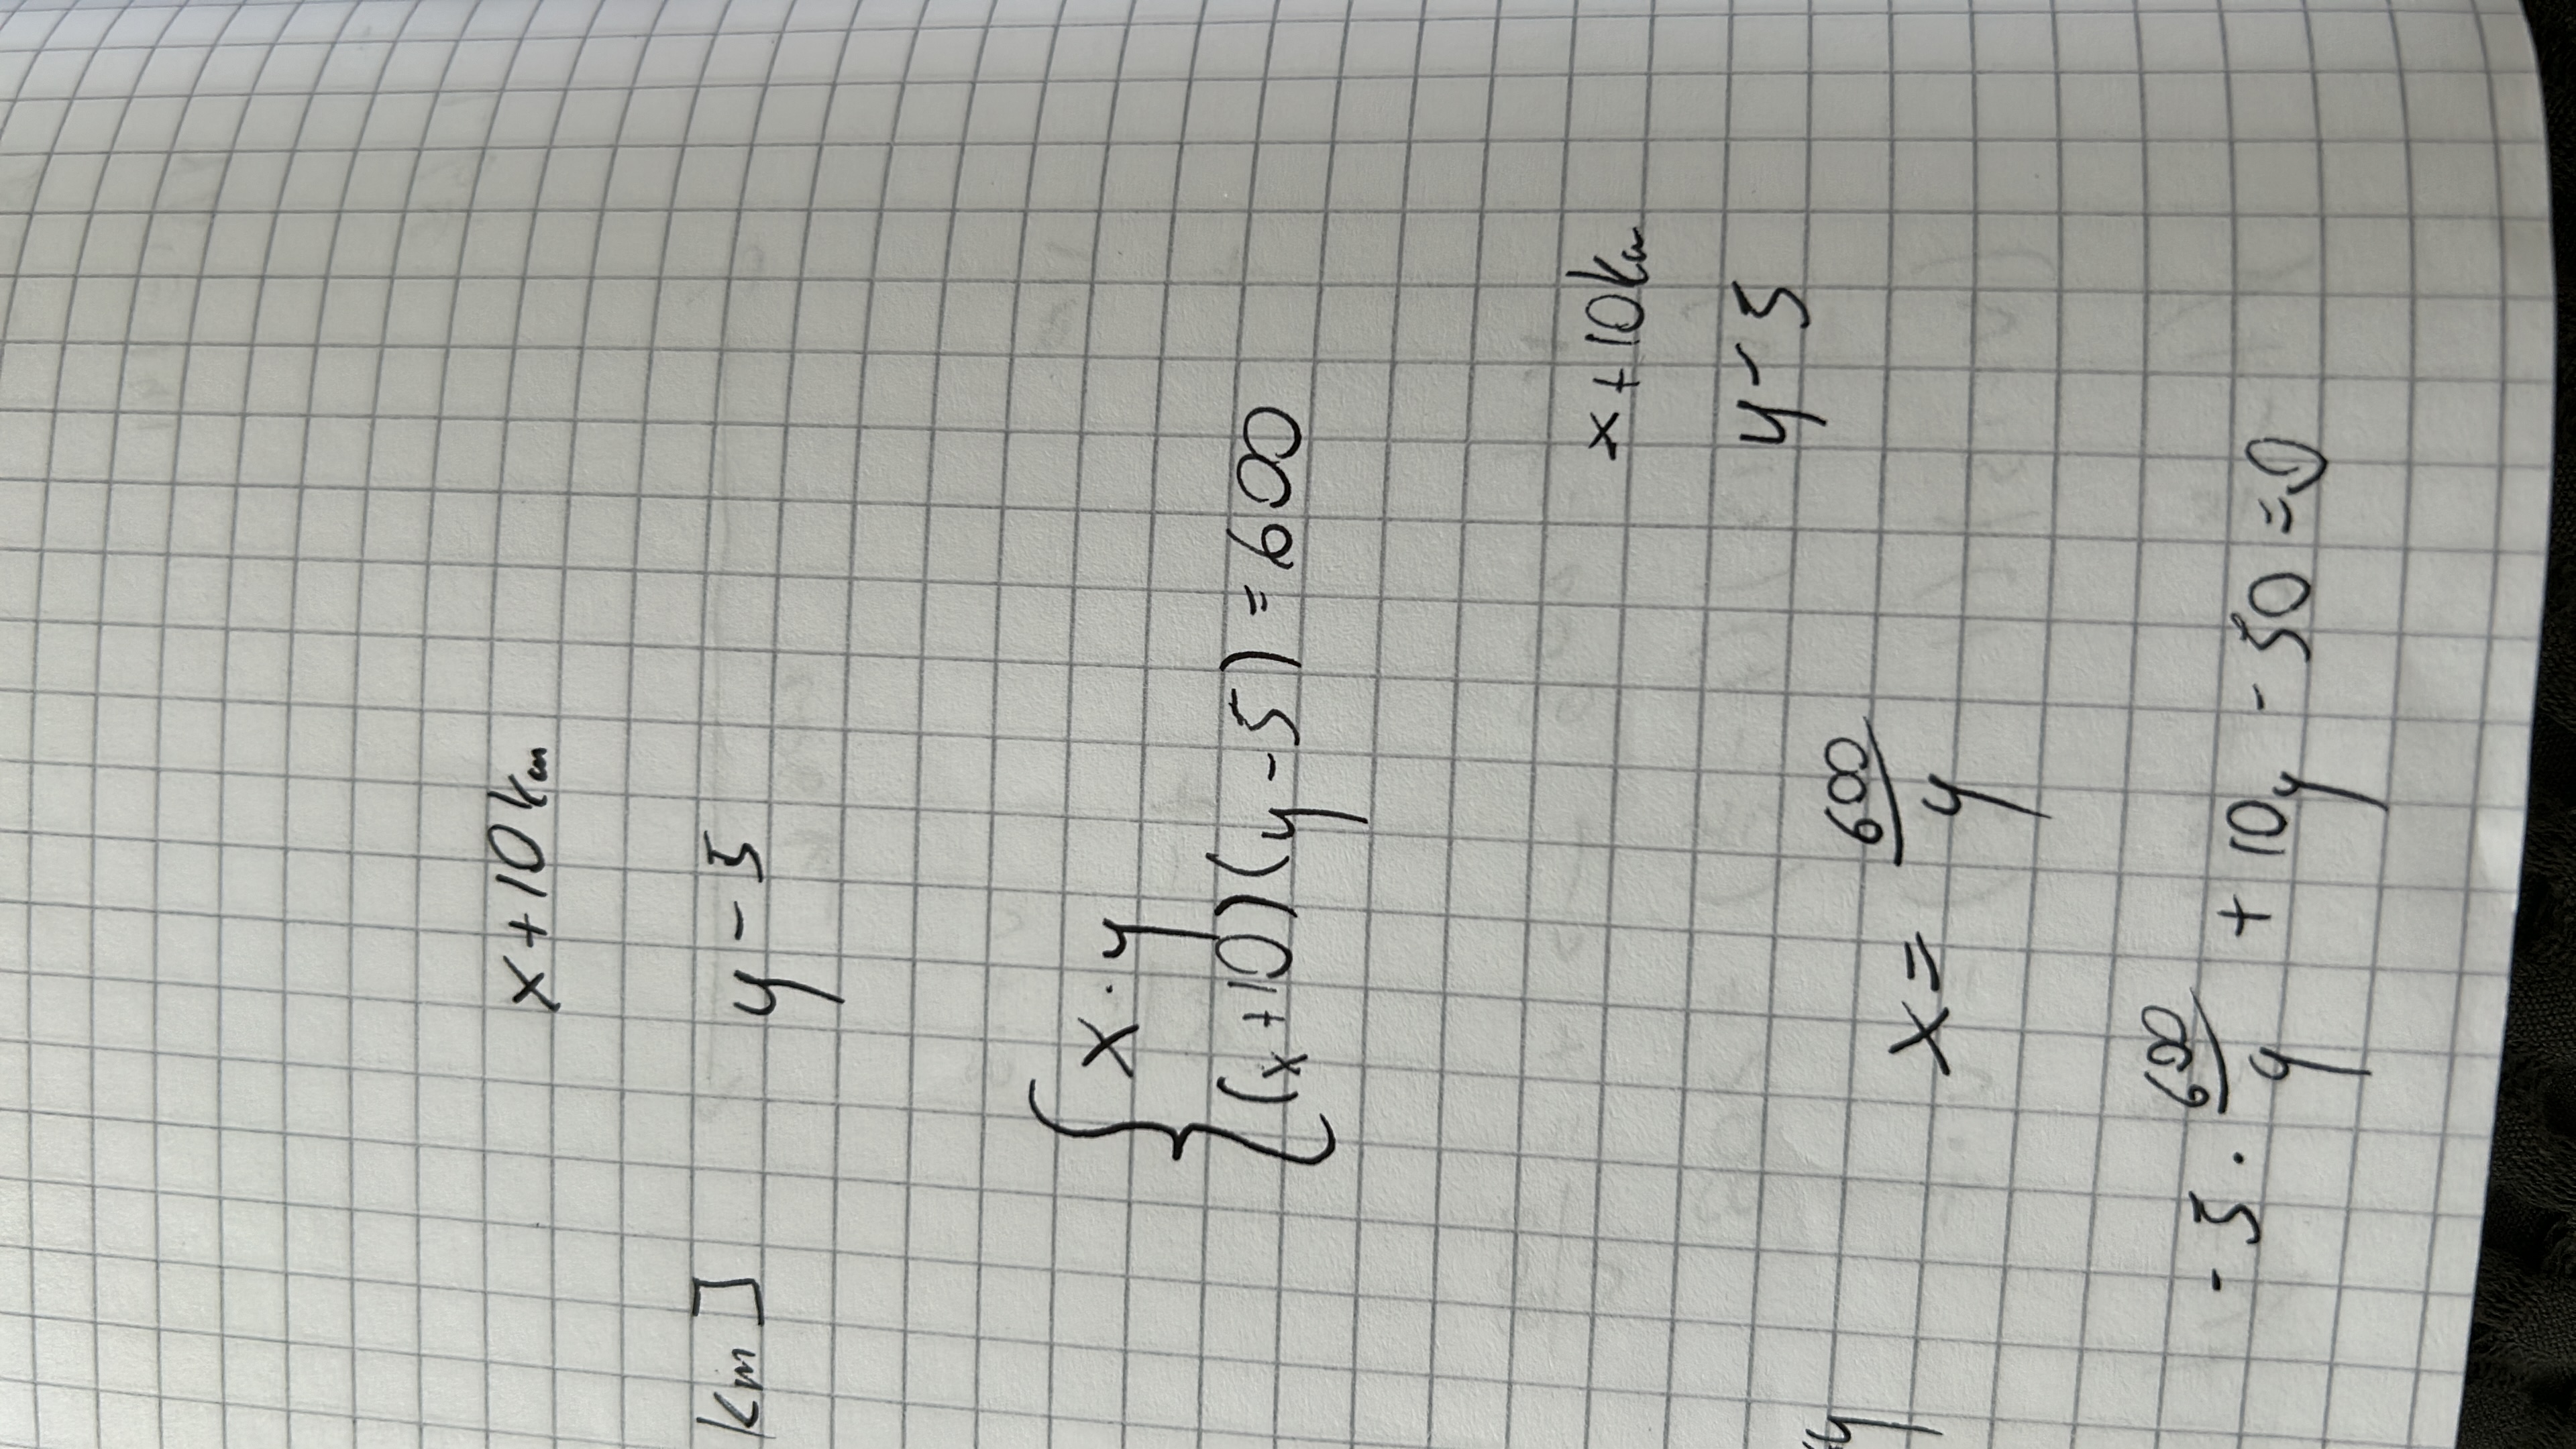 x+10km
km] y-5
{x·y
(x+10)(y-5)=600
x+10km
y-5
y x=600/y
-5·600/y+10y-50=0